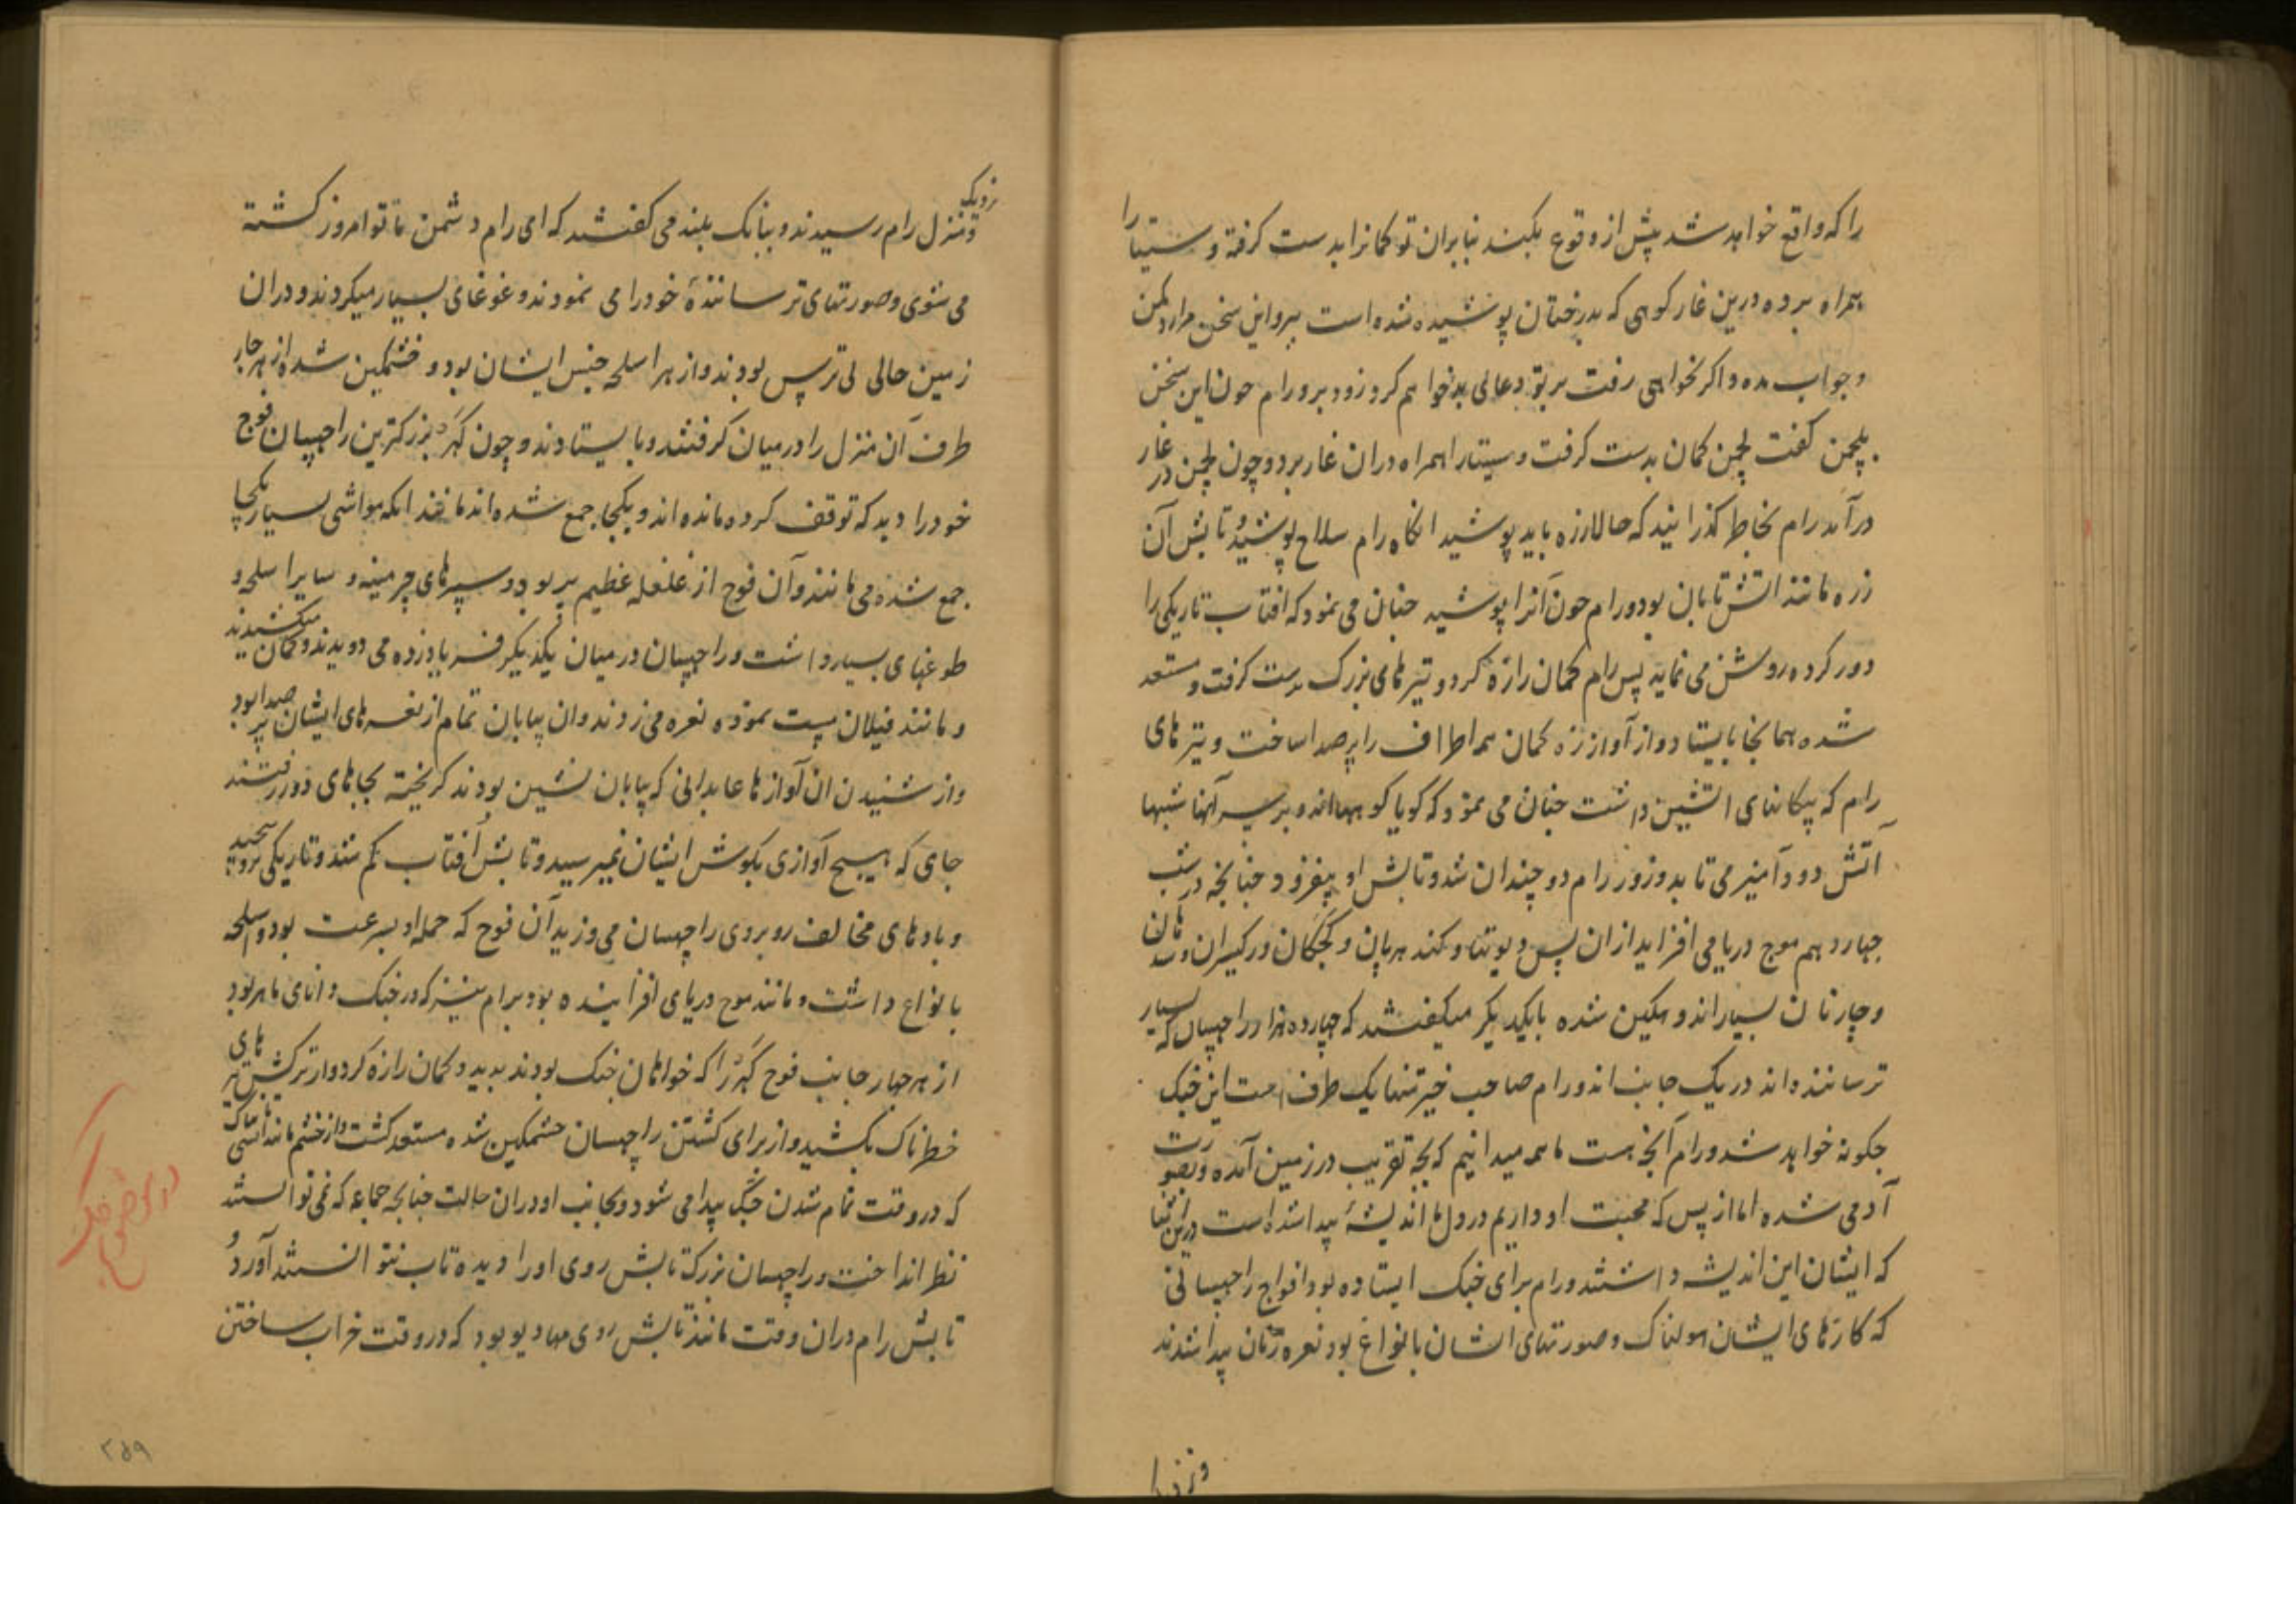 را که واقع خواهد شد پیش از وقوع بکنند بنابران تو کمانرا بدست کرفته و سیتا را
همراه برده درین غار کوهی که بدرختان پوشیده شده است ببرو این سخن مرا رد مکن
و جواب مده و اکر نخواهی رفت بر تو دعائی بد خواهم کرد زود برو رام چون این سخن
بلچمن کفت لچمن کمان بدست کرفت و سیتا را همراه دران غار برد و چون لچمن در غار
درآمد رام بخاطر کذرانید که حالا زره باید پوشید انکاه رام سلاح پوشید و تابش آن
زره مانند اتش تابان بود و رام چون آنرا پوشید چنان می نمود که افتاب تاریکی را
دور کرده روشن می نماید پس رام کمان را زه کرد و تیرهای بزرک بدست کرفت و مستعد
شده همانجا بایستاد و از آواز زه کمان همه اطراف را پرصدا ساخت و تیرهای
رام که پیکانهای اتشین داشت چنان می نمود که کویا کوهها اند و بر سر آنها شبها
آتش دود آمیز می تابد و زور رام دو چندان شد و تابش او بیفزود چنانچه در شب
چهاردهم موج دریا می افزاید ازان پس دیوتتها و کندهربان و
و چارنان بسیار اندوهکین شده بایکدیکر میکفتند که چهارده هزار راچهسان که بسیار
ترساننده اند در یک جانب اند و رام صاحب خیر تنها یک طرف است این جنک
چکونه خواهد شد و رام آنچه هست ما همه میدانیم که بچه تقریب در زمین آمده و بصورت
آدمی شده اما از بس که محبت او داریم در دل ما اندیشهٔ پیدا شده است درین اثنا
که ایشان این اندیشه داشتند و رام برای جنک ایستاده بود افواج راچهسانی
که کارهای ایشان هولناک و صورتهای ایشان بانواع بود نعره زنان پیدا شدند
و نزدیک
و نزدیک منزل رام رسیدند و ببانک بلند می کفتند که ای رام دشمن ما تو امروز کشته
می شوی و صورتهای ترسانندهٔ خود را می نمودند و غوغای بسیار میکردند و دران
زمین خالی بی ترس بودند و از هر اسلحه جنس ایشان بود و خشمکین شده از هر چار
طرف آن منزل را درمیان کرفتند و بایستادند و چون کهر بزرکترین راچهسان فوج
خود را دید که توقف کرده مانده اند و یکجا جمع شده اند مانند انکه مواشی بسیار یکجا
جمع شده می مانند و آن فوج از غلغله عظیم پر بود و سپرهای چرمینه و سایر اسلحه و
طوغهای بسیار داشت و راچهسان در میان یکدیکر فریاد زده می دویدند و کمان میکشیدند
و مانند فیلان مست نموده نعره می زدند و ان بیابان تمام از نعره های ایشان پر صدا بود
و از شنیدن ان آوازها عابدانی که بیابان نشین بودند کریخته بجاهای دور رفتند
جای که هیچ آوازی بکوش ایشان نمیرسید و تابش آفتاب کم شد و تاریکی
و بادهای مخالف روبروی راچهسان می وزید آن فوج که حمله او بسرعت بود و اسلحه
بانواع داشت و مانند موج دریای افزاینده بود برام نیز که در جنک دانای ماهر بود
از هر چهار جانب فوج کهر را که خواهان جنک بودند بدید و کمان را زه کرد و از ترکش تیرهای
خطرناک بکشید و از برای کشتن راچهسان خشمکین شده مستعد کشت و از خشم مانند اتشی
که در وقت تمام شدن جک پیدا می شود و بجانب او دران حالت چنانچه جماعه که نمی توانستند
نظر انداخت و راچهسان بزرک تابش روی او را دیده تاب نتوانستند آورد و
تابش رام دران وقت مانند تابش روی مهادیو بود که در وقت خراب ساختن
۲۵۹